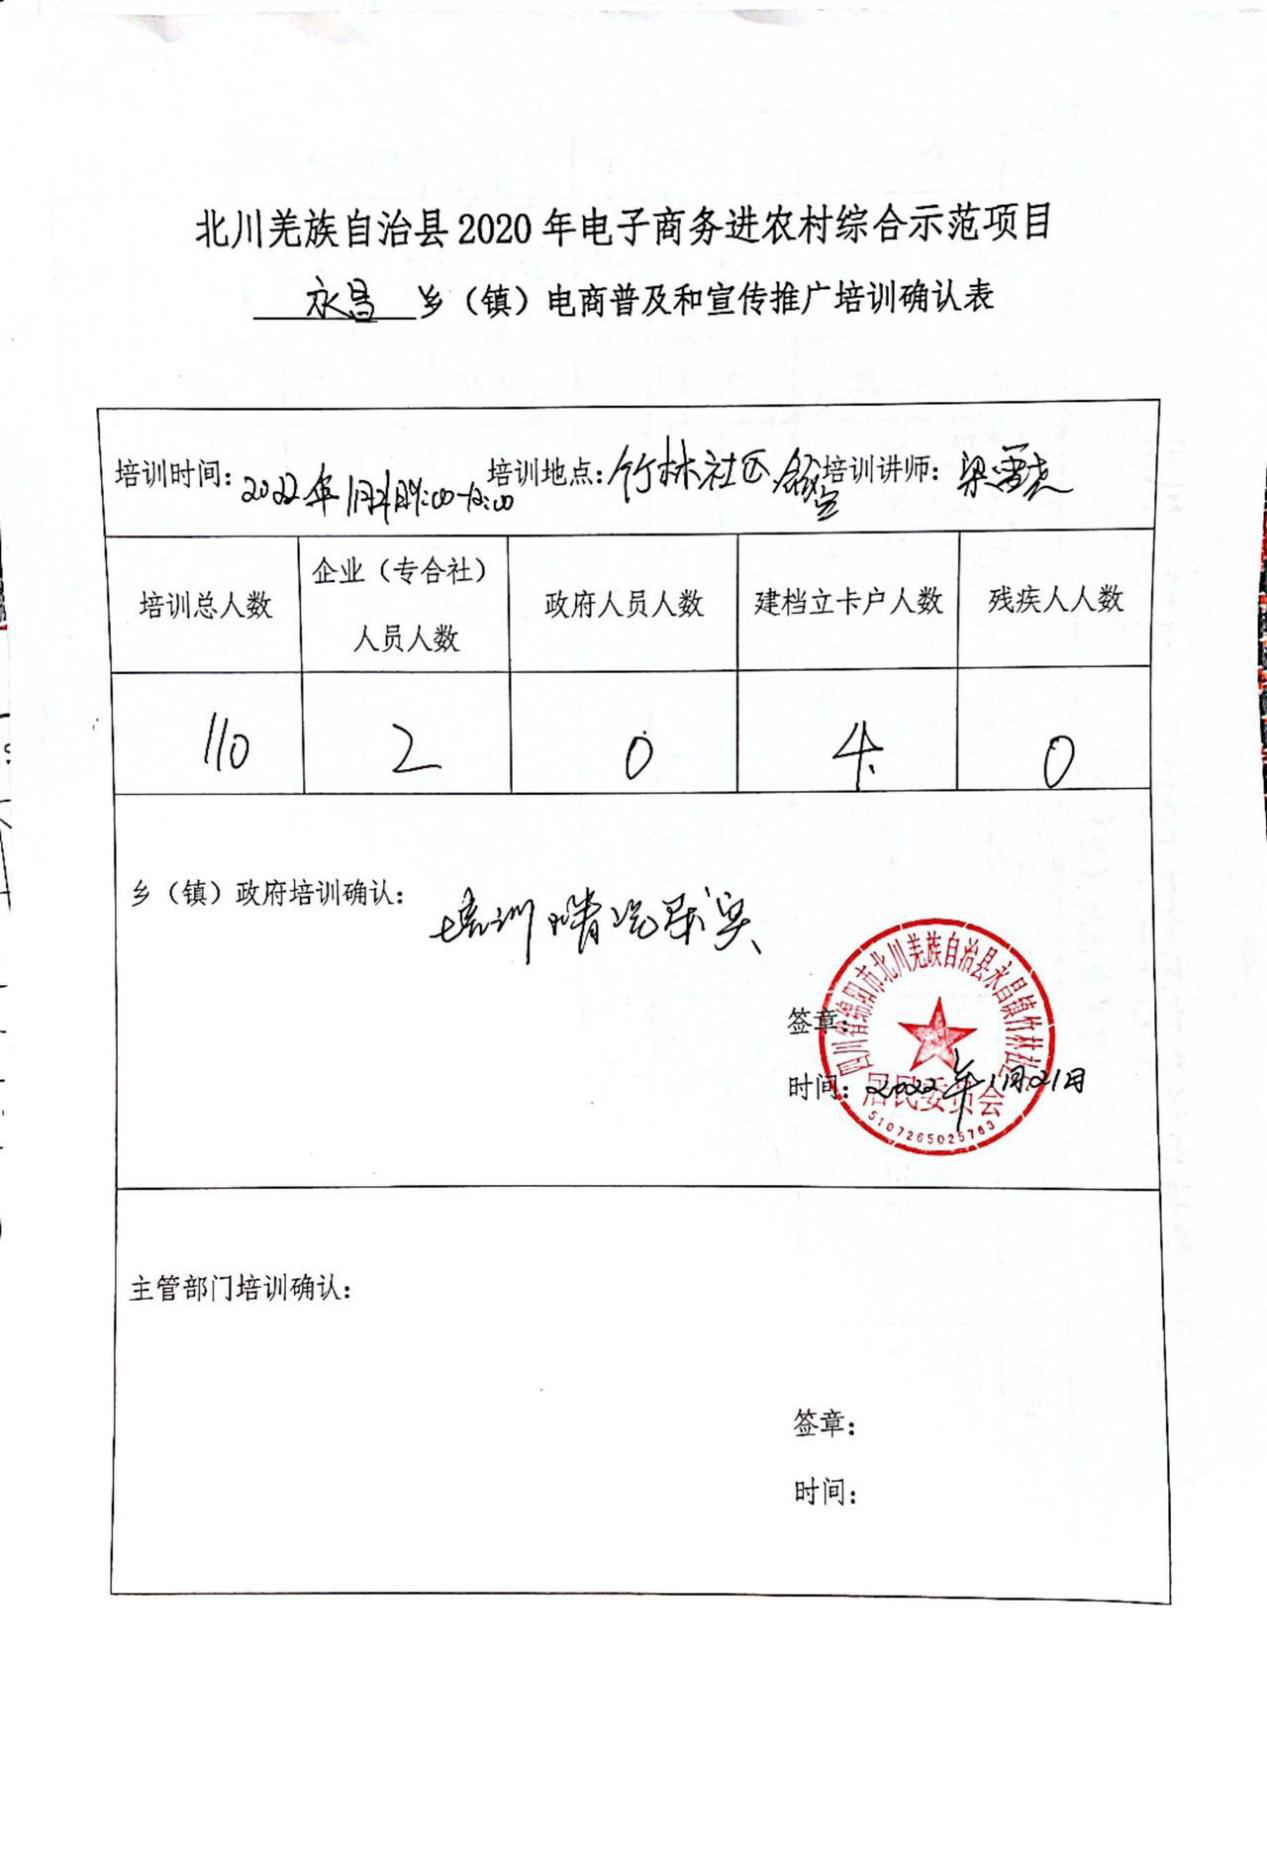 北川羌族自治县2020年电子商务进农村综合示范项目
永昌 乡（镇）电商普及和宣传推广培训确认表
培训时间：2022年1月21日9:00-12:00 培训地点：竹林社区 培训讲师：梁
培训总人数
企业（专合社）
人员人数
政府人员人数
建档立卡户人数
残疾人人数
110 2 0 4 0
乡（镇）政府培训确认：
培训情况属实
四川省绵阳市北川羌族自治县永昌镇竹林社区
居民委员会
5107265025763
签章：
时间：2022年1月21日
主管部门培训确认：
签章：
时间：